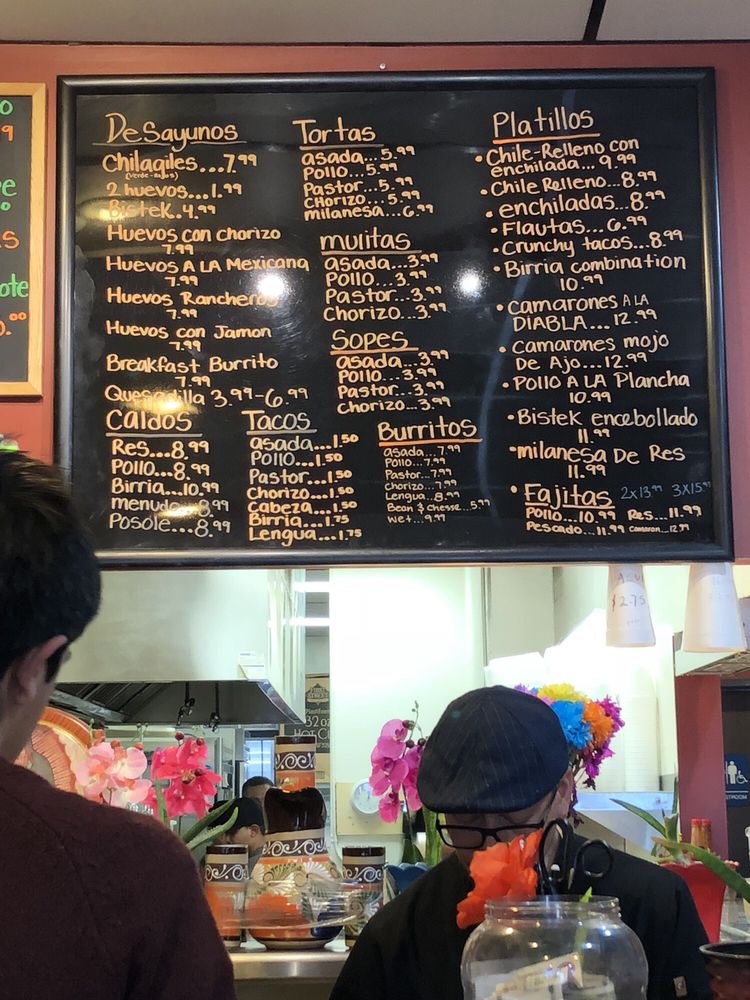 Desayunos
Chilaqiles...7.99
(verde-rojos)
2 huevos...1.99
Bistek..4.99
Huevos con chorizo
7.99
Huevos A LA Mexicana
7.99
Huevos Rancheros
7.99
Huevos con Jamon
7.99
Breakfast Burrito
7.99
Quesadilla 3.99-6.99
Caldos
Res...8.99
Pollo...8.99
Birria...10.99
menudo...8.99
Posole...8.99
Tortas
asada...5.99
Pollo...5.99
Pastor...5.99
CHorizo...5.99
milanesa...6.99
mulitas
asada...3.99
Pollo...3.99
Pastor...3.99
Chorizo...3.99
Sopes
asada...3.99
Pollo...3.99
Pastor...3.99
Chorizo...3.99
Tacos
asada...1.50
Pollo...1.50
Pastor...1.50
Chorizo...1.50
Cabeza...1.50
Birria...1.75
Lengua...1.75
Burritos
asada...7.99
Pollo...7.99
Pastor...7.99
Chorizo...7.99
Lengua...8.99
Bean & Cheese...5.99
wet...9.99
Platillos
• Chile-Relleno con
enchilada...9.99
• Chile Relleno...8.99
• enchiladas...8.99
• Flautas...6.99
• Crunchy tacos...8.99
• Birria combination
10.99
• camarones A LA
DIABLA...12.99
• camarones mojo
De Ajo...12.99
• Pollo A LA Plancha
10.99
• Bistek encebollado
11.99
• milanesa De Res
11.99
• Fajitas 2x13.99 3x15.99
Pollo...10.99 Res...11.99
Pescado...11.99 Camaron...12.99
$2.75
32oz